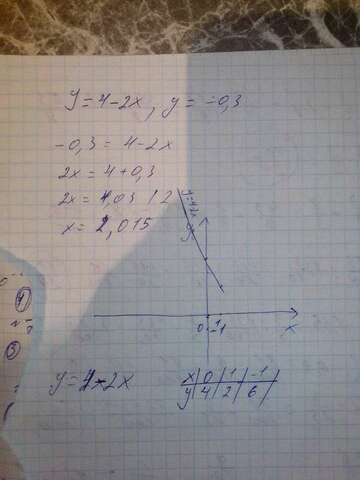 y = 4 - 2x, y = -0,3
-0,3 = 4 - 2x
2x = 4 + 0,3
2x = 4,03 / 2
x = 2,015
y=4-2x
y
0 1
x
4
3
y = 4 - 2x
x | 0 | 1 | -1 |
y | 4 | 2 | 6 |